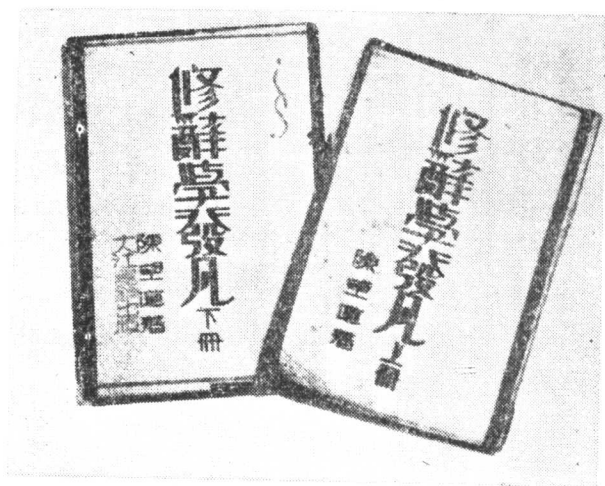 修辭學發凡下冊
陳望道著
大江書鋪
修辭學發凡上冊
陳望道著